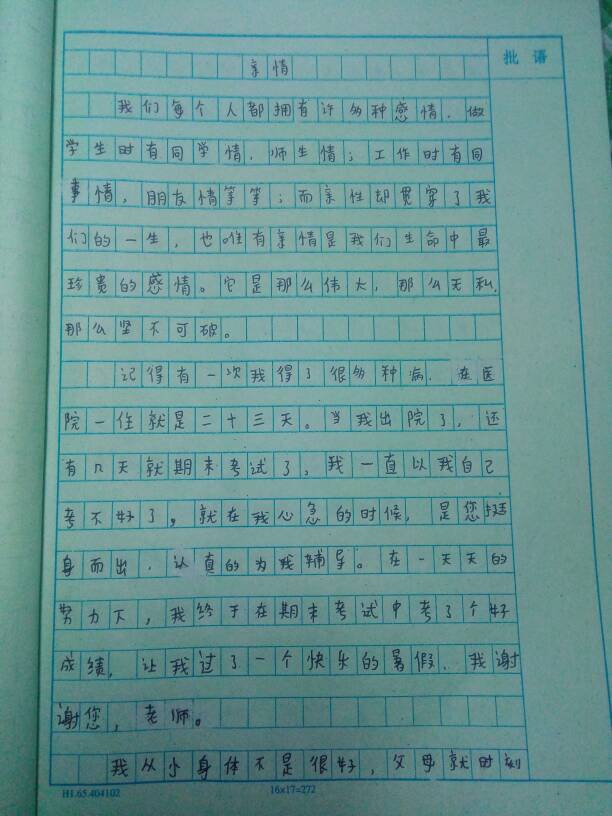 批语
亲情
我们每个人都拥有许多种感情．做
学生时有同学情．师生情；工作时有同
事情，朋友情等等；而亲性却贯穿了我
们的一生，也唯有亲情是我们生命中最
珍贵的感情。它是那么伟大，那么无私．
那么坚不可破。
记得有一次我得了很多种病．在医
院一住就是二十三天。当我出院了，还
有几天就期末考试了，我一直以我自己
考不好了，就在我心急的时候，是您挺
身而出．认真的为我辅导。在一天天的
努力下，我终于在期末考试中考了个好
成绩，让我过了一个快乐的暑假．我谢
谢您，老师。
我从小身体不是很好，父母就时刻
H1.65.404102
16×17=272